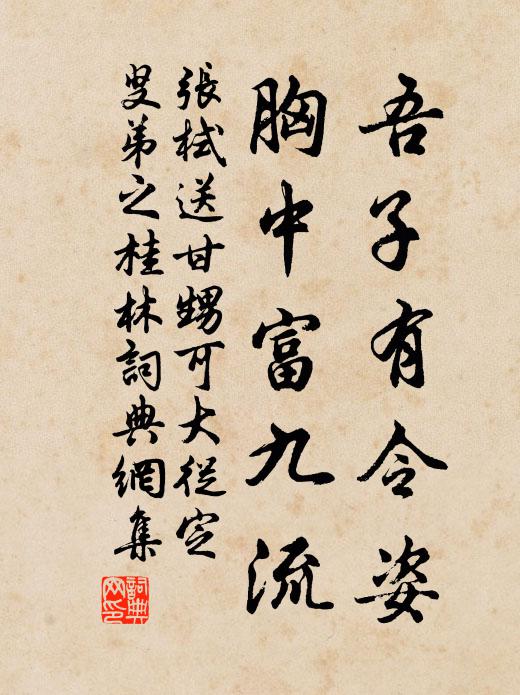 吾子有令姿
胸中富九流
張栻送甘甥可大從定
叟弟之桂林詞典網集
詞典網印